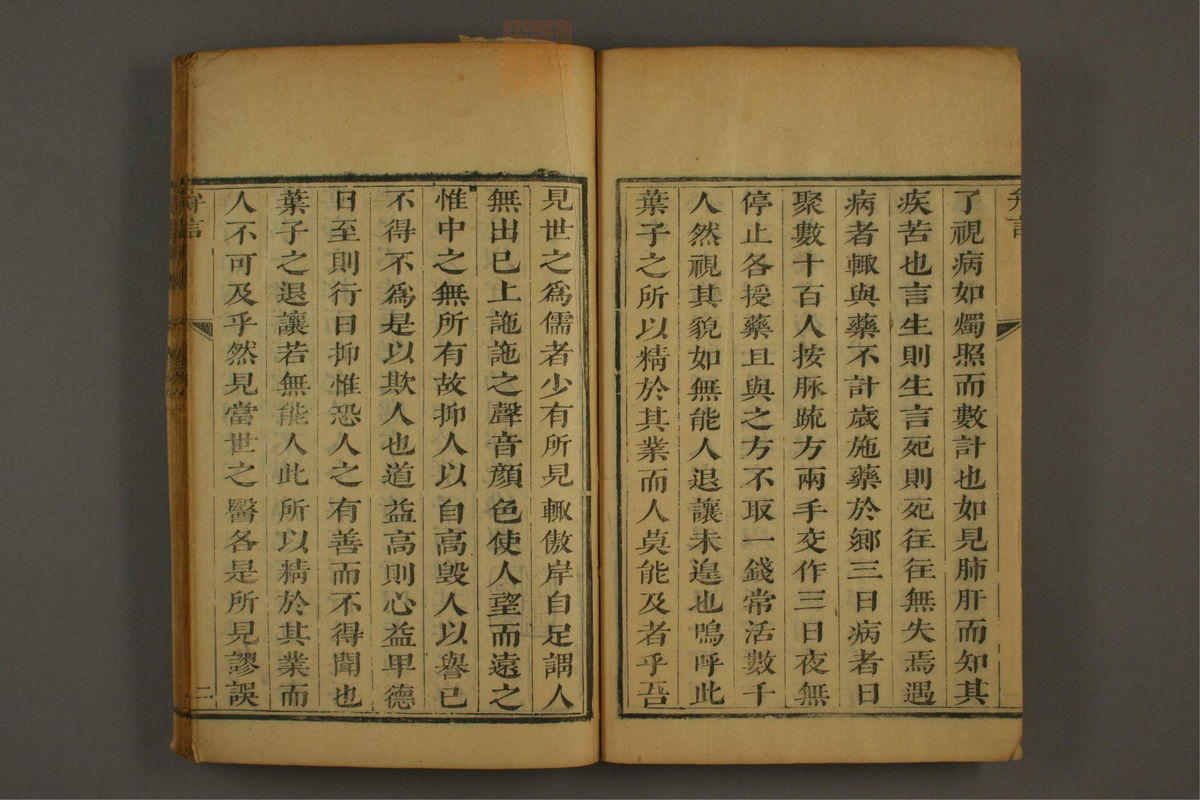 弁言
了視病如燭照而數計也如見肺肝而知其
疾苦也言生則生言死則死徃徃無失焉遇
病者輙與藥不計歲施藥於鄉三日病者日
聚數十百人按脉䟽方兩手交作三日夜無
停止各授藥且與之方不取一錢常活數千
人然視其貌如無能人退讓未遑也嗚呼此
葉子之所以精於其業而人莫能及者乎吾
見世之爲儒者少有所見輙傲岸自足謂人
無出已上訑訑之聲音顏色使人望而遠之
惟中之無所有故抑人以自高毀人以譽已
不得不爲是以欺人也道益高則心益卑德
日至則行日抑惟恐人之有善而不得聞也
葉子之退讓若無能人此所以精於其業而
人不可及乎然見當世之醫各是所見謬誤
弁言
二